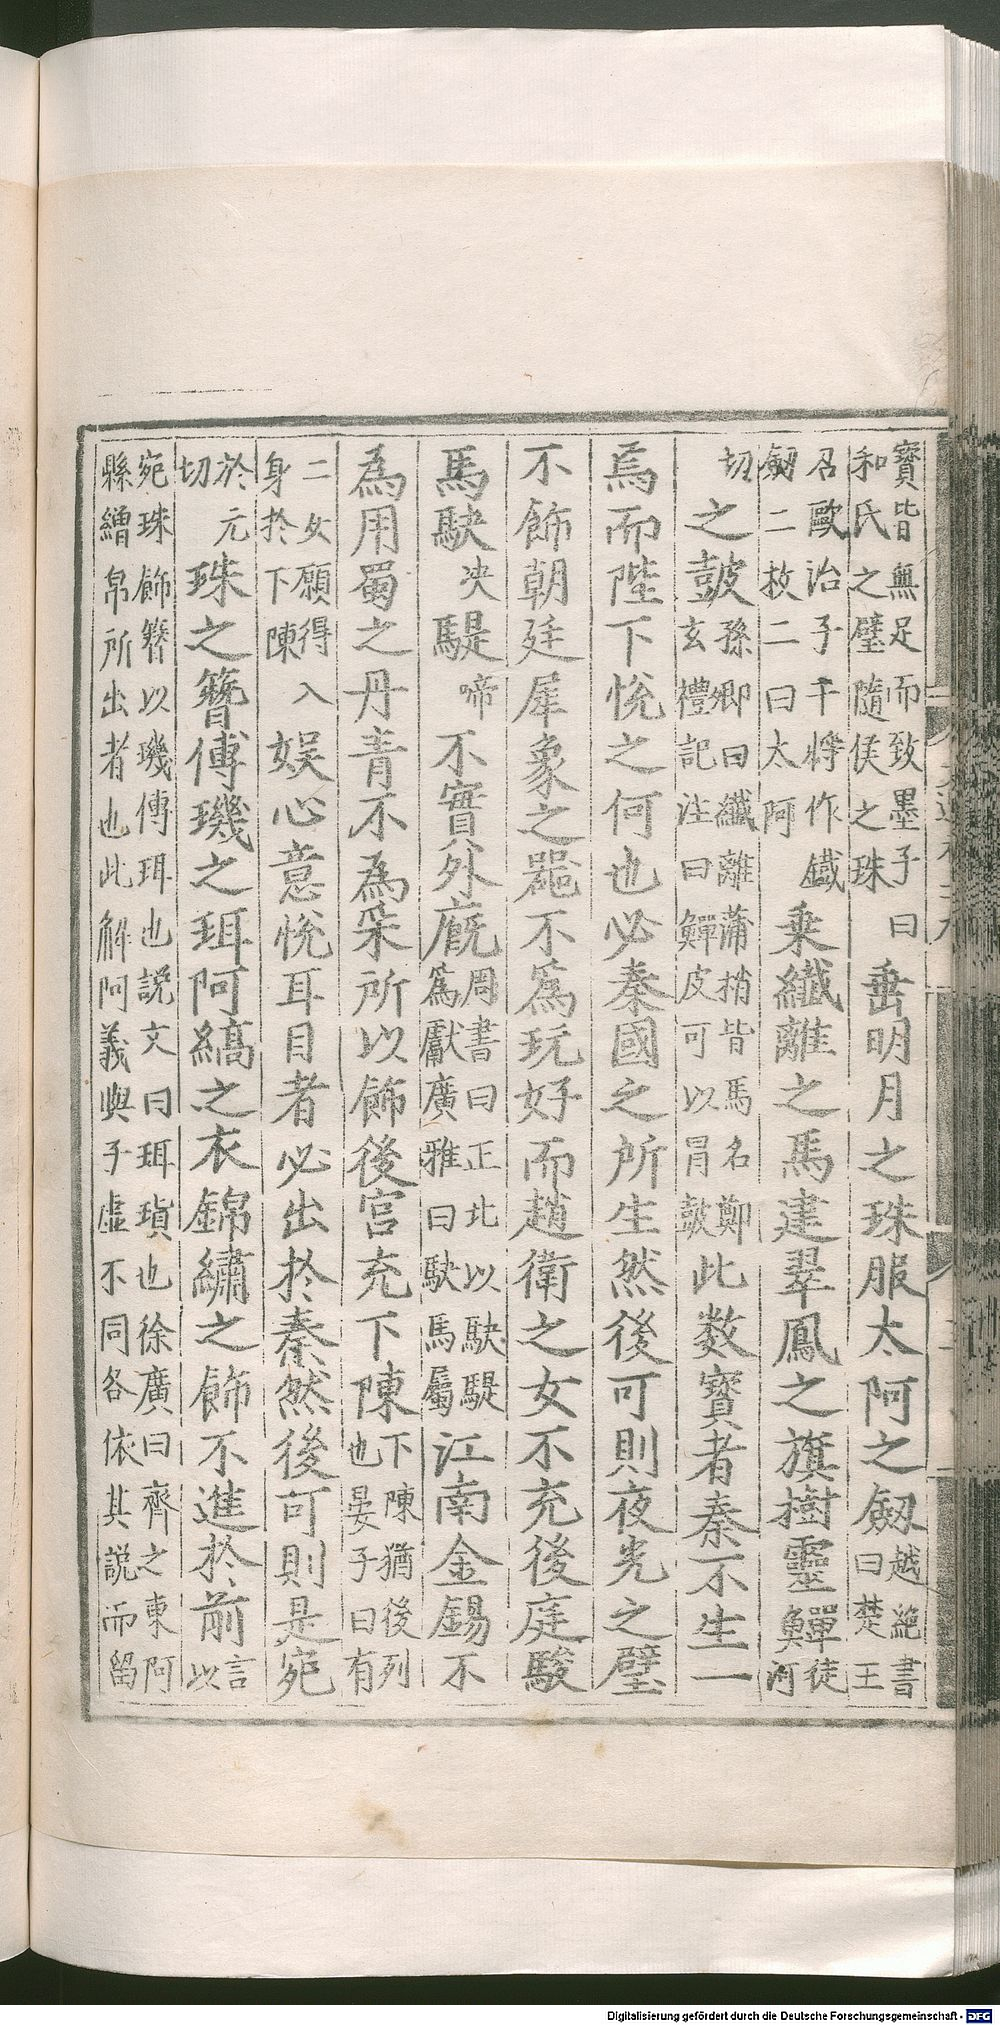 寶皆無足而致墨子曰
和氏之璧隨侯之珠
垂明月之珠服太阿之劒
越絶書
曰楚王
召歐冶子干將作鐵
劒二枚二曰太阿
乗纎離之馬建翠鳳之旗樹靈鱓
徒
河
切
之鼓
孫卿曰纎離蒲梢皆馬名鄭
玄禮記注曰鱓皮可以冐鼓
此數寶者秦不生一
焉而陛下悅之何也必秦國之所生然後可則夜光之璧
不飾朝廷犀象之器不爲玩好而趙衛之女不充後庭駿
馬駃
决
騠
啼
不實外廐
周書曰正北以駃騠
爲獻廣雅曰駃馬屬
江南金錫不
為用蜀之丹青不為采所以飾後宫充下陳
下陳猶後列
也晏子曰有
二女願得入
身於下陳
娯心意悅耳目者必出於秦然後可則是宛
於元
切
珠之簪傅璣之珥阿縞之衣錦繡之飾不進於前
言
以
宛珠飾簪以璣傅珥也説文曰珥瑱也徐廣曰齊之東阿
縣繒帛所出者也此解阿義與子虛不同各依其説而留
Digitalisierung gefördert durch die Deutsche Forschungsgemeinschaft - DFG